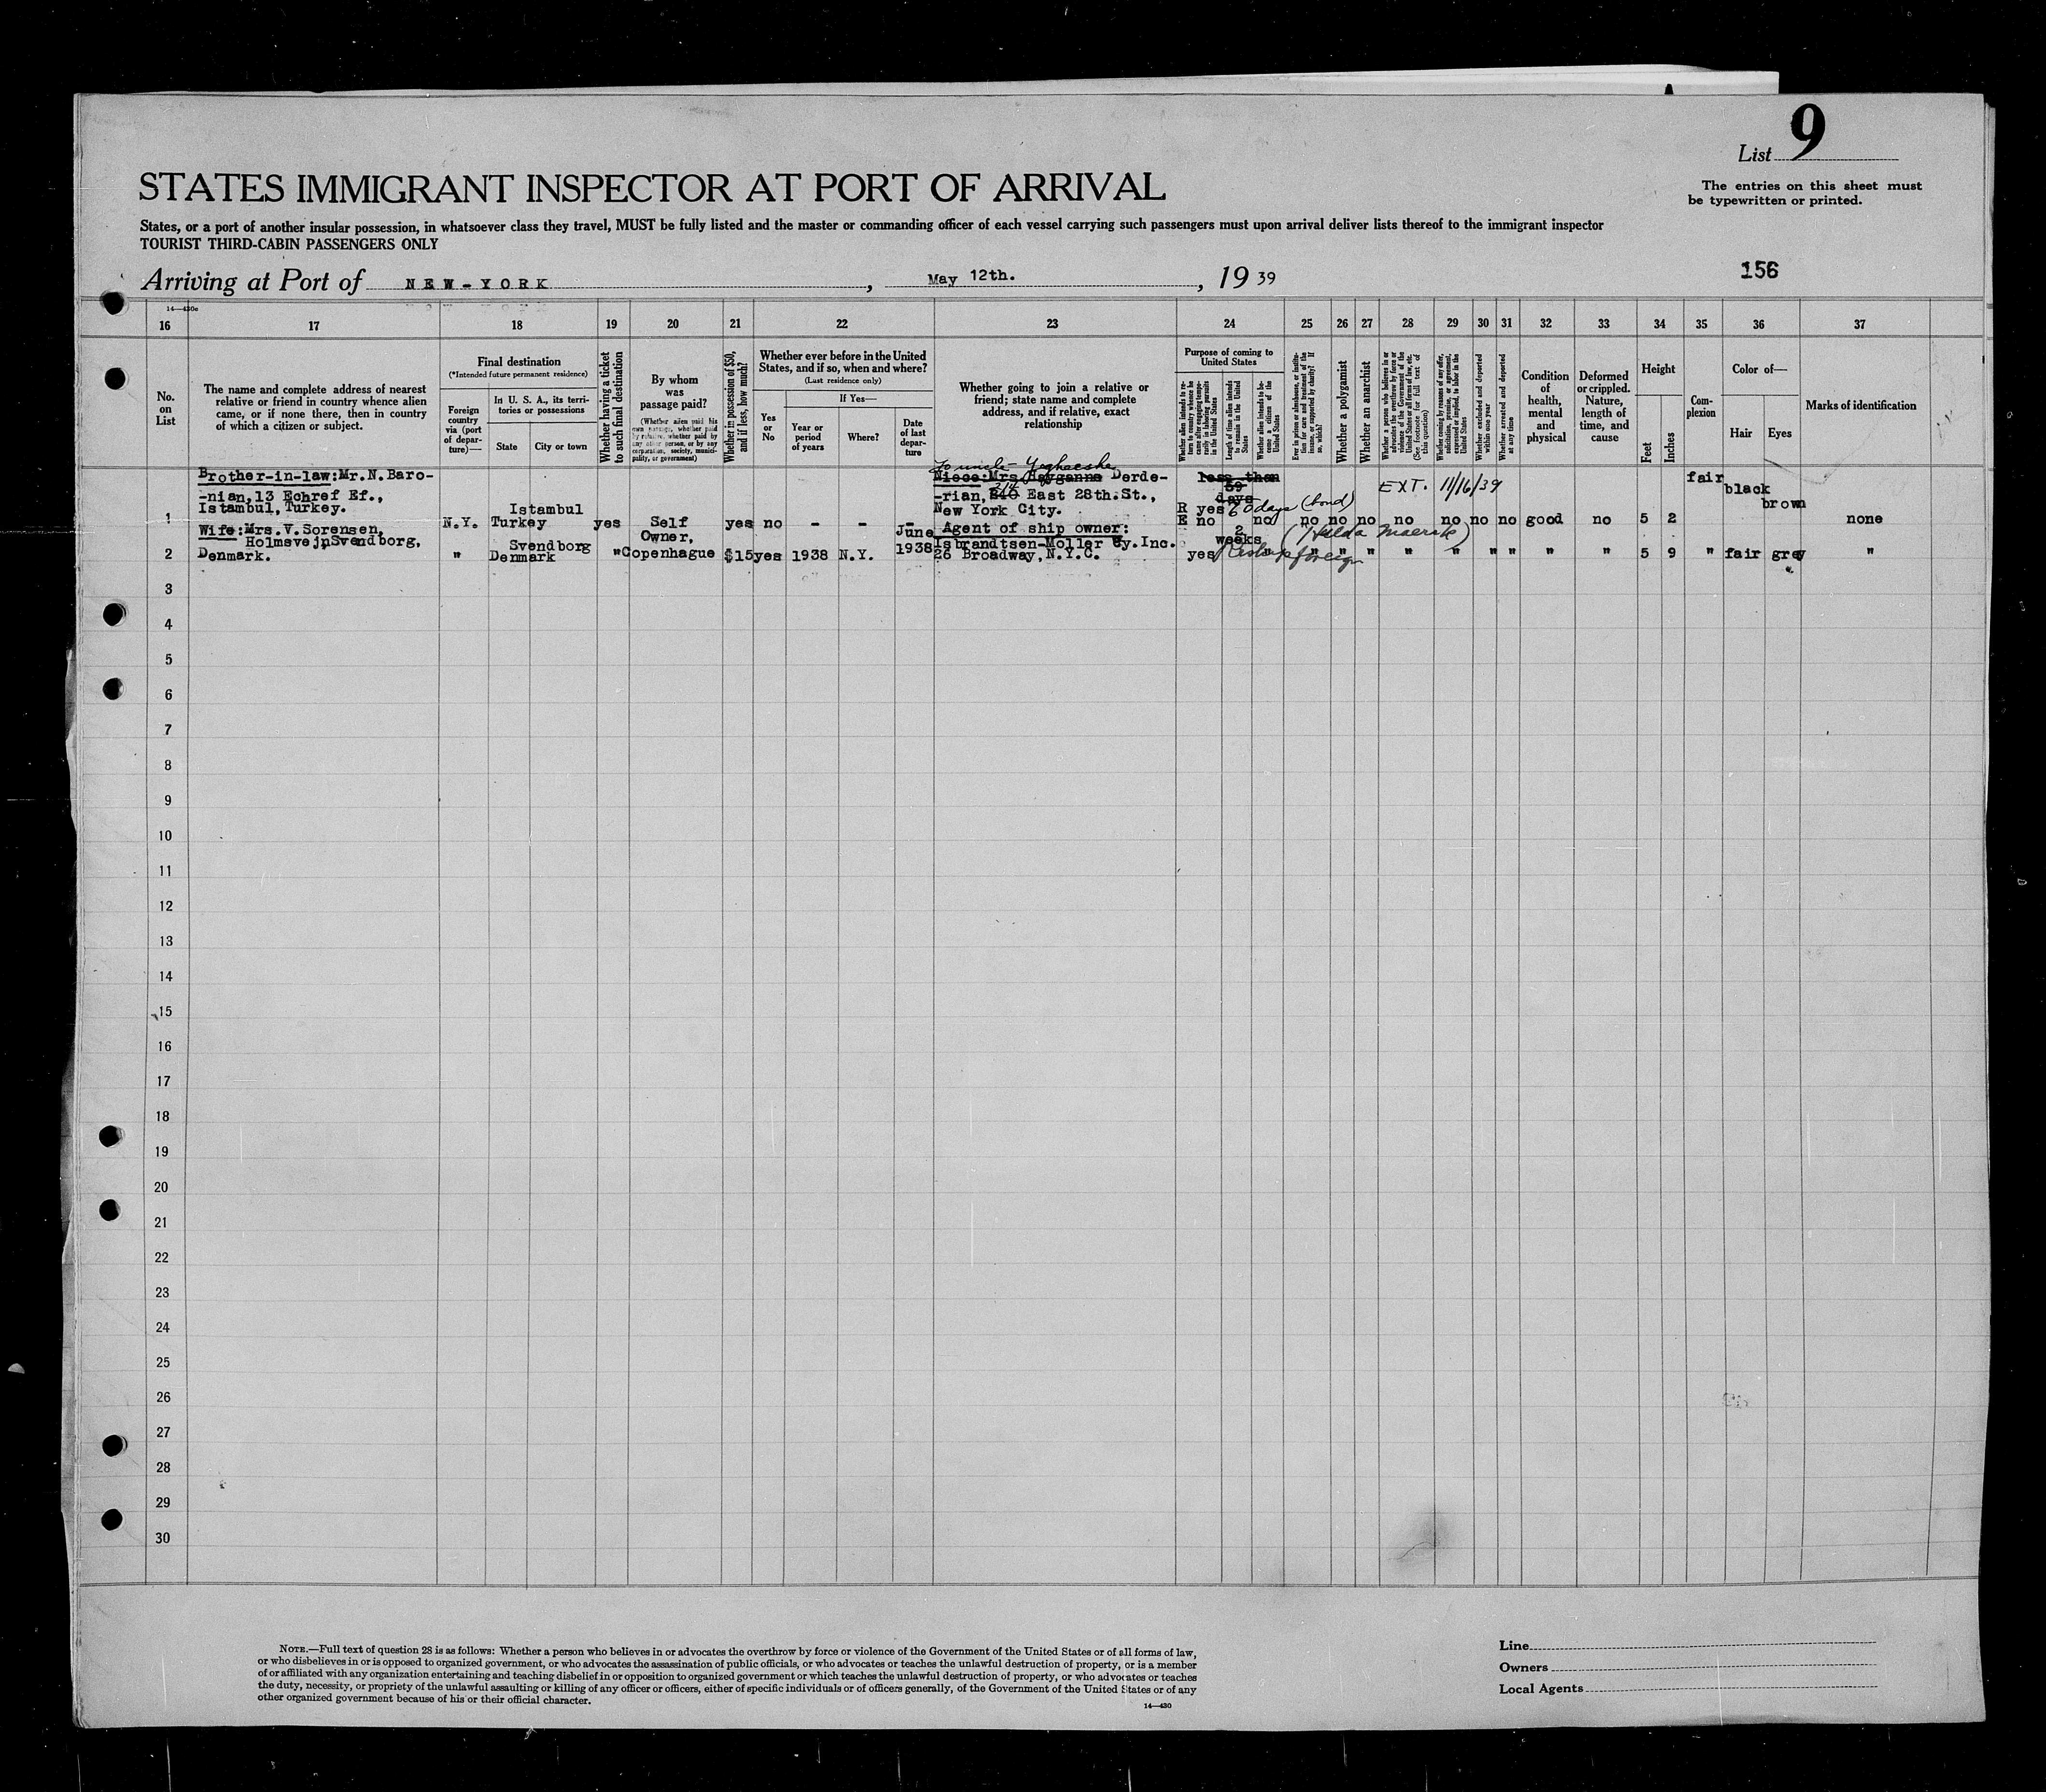 List 9
STATES IMMIGRANT INSPECTOR AT PORT OF ARRIVAL
The entries on this sheet must
be typewritten or printed.
States, or a port of another insular possession, in whatsoever class they travel, MUST be fully listed and the master or commanding officer of each vessel carrying such passengers must upon arrival deliver lists thereof to the immigrant inspector
TOURIST THIRD-CABIN PASSENGERS ONLY
Arriving at Port of NEW-YORK, May 12th., 1939
156
14—430c
16 17 18 19 20 21 22 23 24 25 26 27 28 29 30 31 32 33 34 35 36 37
No.
on
List
The name and complete address of nearest
relative or friend in country whence alien
came, or if none there, then in country
of which a citizen or subject.
Final destination
(*Intended future permanent residence)
Foreign
country
via (port
of depar-
ture)—
In U. S. A., its terri-
tories or possessions
State
City or town
Whether having a ticket
to such final destination
By whom
was
passage paid?
(Whether alien paid his
own passage, whether paid
by relative, whether paid by
any other person, or by any
corporation, society, munici-
pality, or government)
Whether in possession of $50,
and if less, how much?
Whether ever before in the United
States, and if so, when and where?
(Last residence only)
Yes
or
No
If Yes—
Year or
period
of years
Where?
Date
of last
depar-
ture
Whether going to join a relative or
friend; state name and complete
address, and if relative, exact
relationship
Purpose of coming to
United States
Whether alien intends to re-
turn to country whence he
came after engaging tempo-
rarily in laboring pursuits
in the United States
Length of time alien intends
to remain in the United
States
Whether alien intends to be-
come a citizen of the
United States
Ever in prison or almshouse, or institu-
tion for care and treatment of the
insane, or supported by charity? If
so, which?
Whether a polygamist
Whether an anarchist
Whether a person who believes in or
advocates the overthrow by force or
violence of the Government of the
United States or all forms of law, etc.
(See footnote for full text of
this question)
Whether coming by reasons of any offer,
solicitation, promise, or agreement,
expressed or implied, to labor in the
United States
Whether excluded and deported
within one year
Whether arrested and deported
at any time
Condition
of
health,
mental
and
physical
Deformed
or crippled.
Nature,
length of
time, and
cause
Height
Feet
Inches
Com-
plexion
Color of—
Hair
Eyes
Marks of identification
To uncle - Yegheeshe
Brother-in-law:Mr.N.Baro- Niece:Mrs. Hayganne Derde- less than fair
-nian,13 Echref Ef., -rian, 310 East 28th.St., 59 EXT. 11/16/39 black
Istambul,Turkey. Istambul New York City. days R yes 60 days (bond) brown
1 N.Y. Turkey yes Self yes no - - - E no no no no no no no no no good no 5 2 none
Wife:Mrs.V.Sorensen, Owner, June Agent of ship owner: 2
Holmsvej,Svendborg, Svendborg 1938 Isbrandtsen-Moller Cy.Inc. weeks (Hilda Maersk)
2 Denmark. " Denmark " Copenhague $15 yes 1938 N.Y. 26 Broadway,N.Y.C. yes Reship foreign " " " " " " " " " " 5 9 " fair grey "
3
4
5
6
7
8
9
10
11
12
13
14
15
16
17
18
19
20
21
22
23
24
25
26
27
28
29
30
NOTE.—Full text of question 28 is as follows: Whether a person who believes in or advocates the overthrow by force or violence of the Government of the United States or of all forms of law,
or who disbelieves in or is opposed to organized government, or who advocates the assassination of public officials, or who advocates or teaches the unlawful destruction of property, or is a member
of or affiliated with any organization entertaining and teaching disbelief in or opposition to organized government or which teaches the unlawful destruction of property, or who advocates or teaches
the duty, necessity, or propriety of the unlawful assaulting or killing of any officer or officers, either of specific individuals or of officers generally, of the Government of the United States or of any
other organized government because of his or their official character.
14—430
Line
Owners
Local Agents